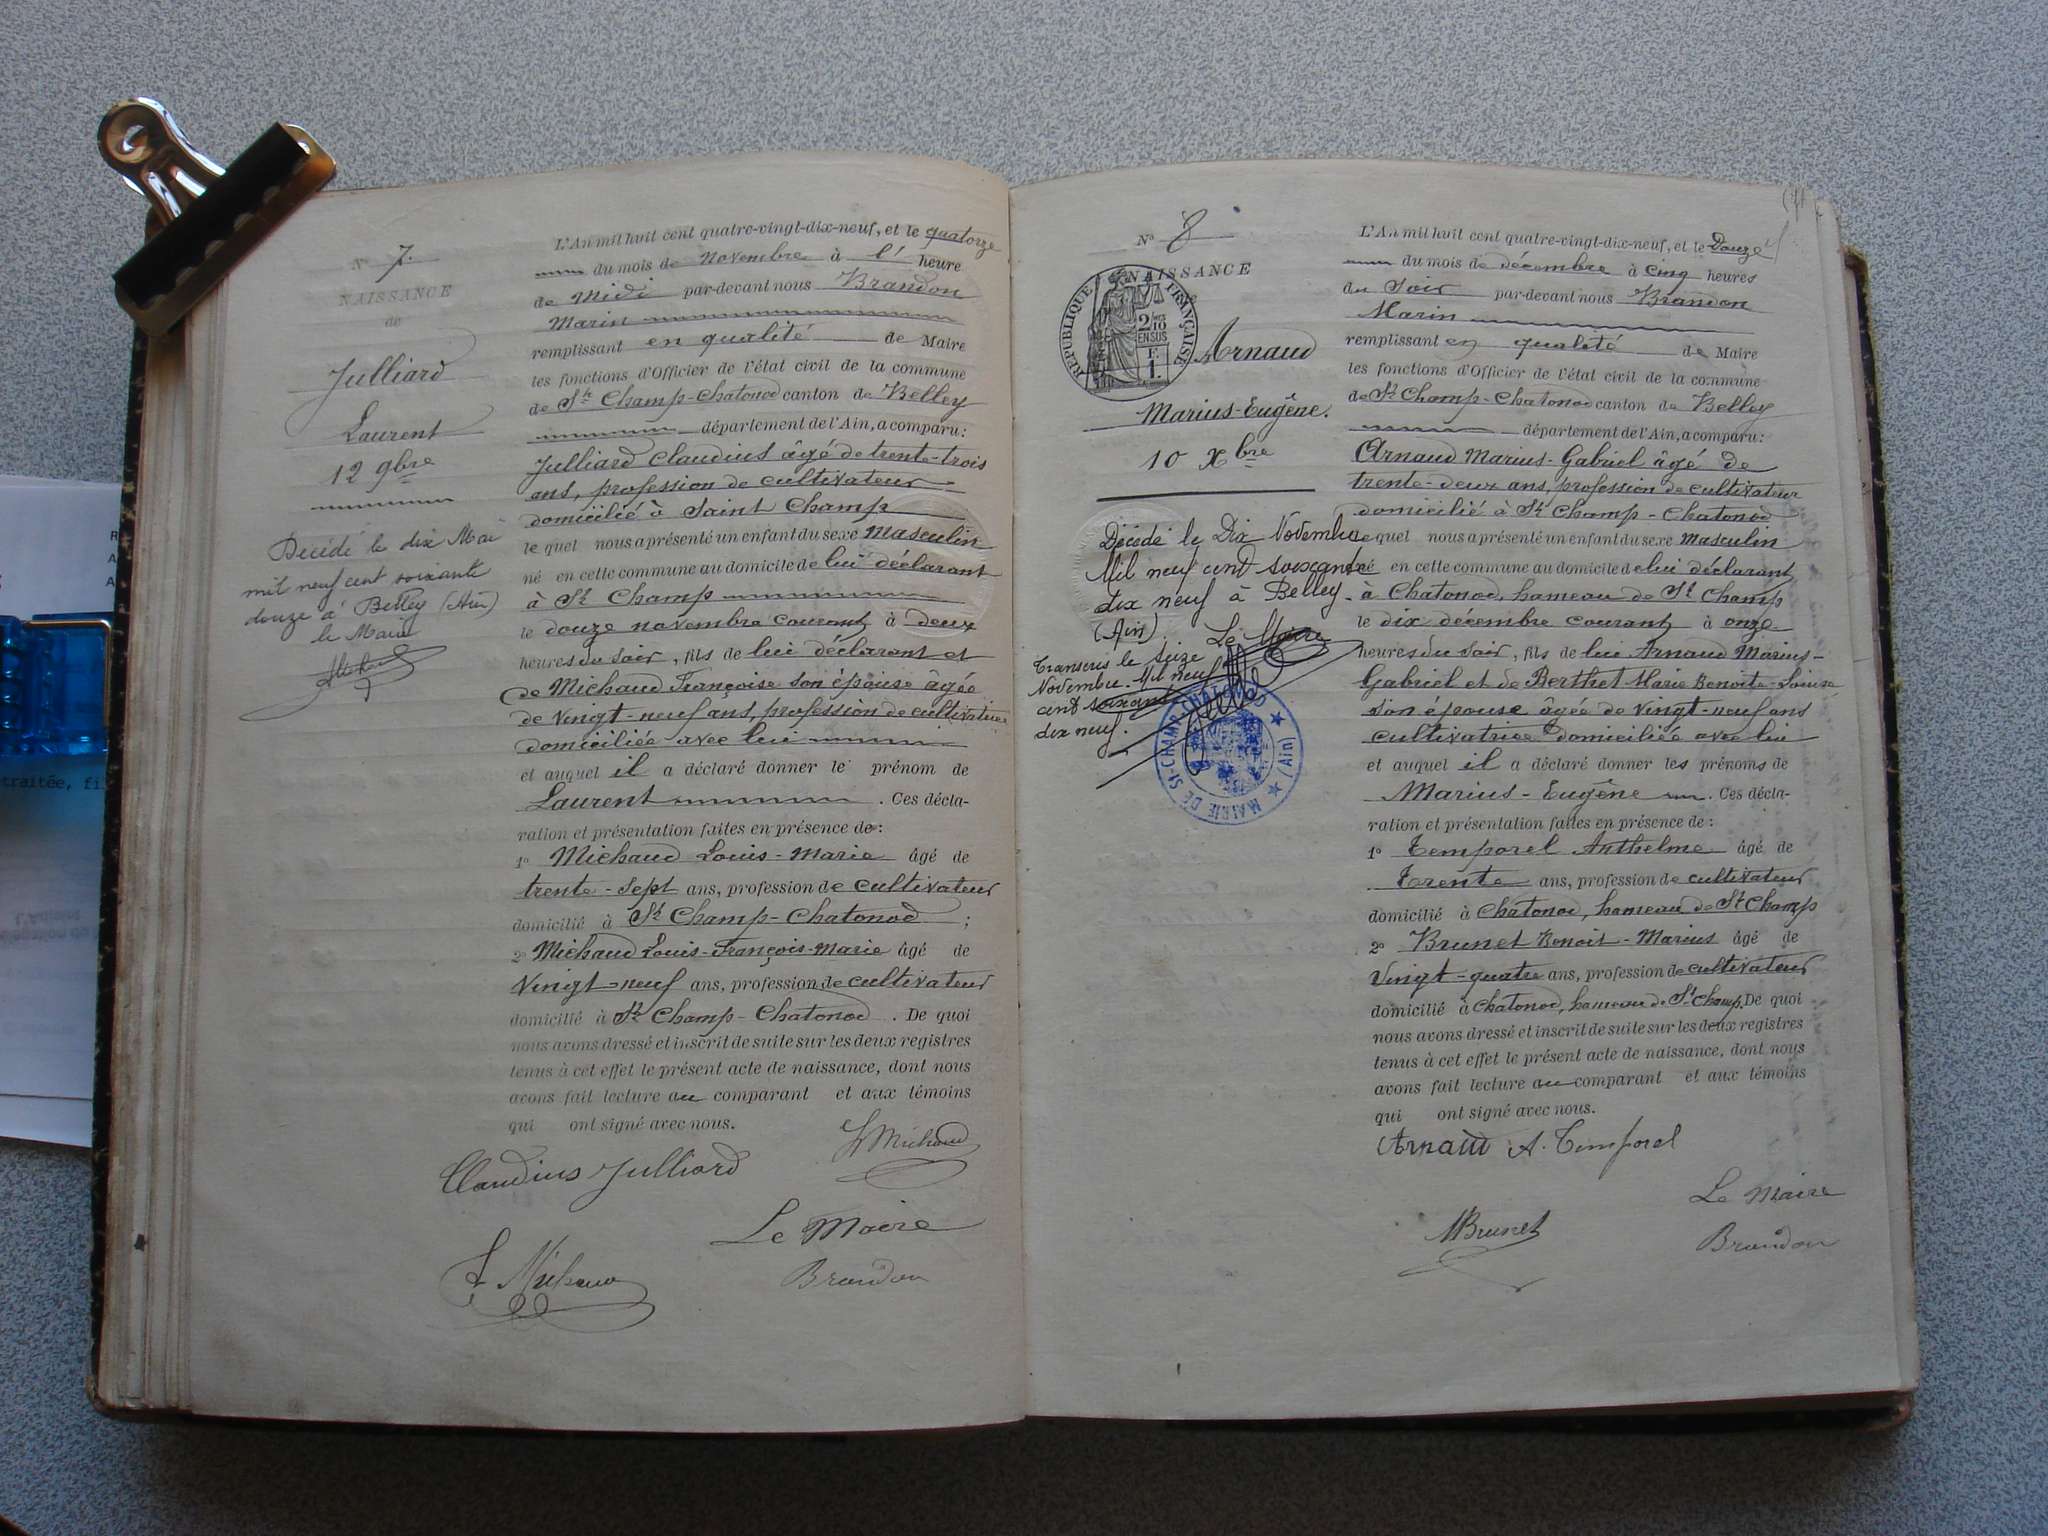 N° 7.
NAISSANCE
de
Julliard
Laurent
12 9bre
Décédé le dix Mai
mil neuf cent soixante
douze à Belley (Ain)
le Maire
L'An mil huit cent quatre-vingt-dix-neuf, et le quatorze
du mois de novembre à l' heure
de Midi par-devant nous Brandon
Marin
remplissant en qualité de Maire
les fonctions d'Officier de l'état civil de la commune
de St Champ-Chatonod canton de Belley
département de l'Ain, a comparu:
Julliard Claudius âgé de trente-trois
ans, profession de cultivateur
domicilié à Saint Champ
le quel nous a présenté un enfant du sexe masculin
né en cette commune au domicile de lui déclarant
à St Champ
le douze novembre courant à deux
heures du soir, fils de lui déclarant et
de Michaud Françoise son épouse âgée
de vingt-neuf ans, profession de cultivatrice
domiciliée avec lui
et auquel il a déclaré donner le prénom de
Laurent. Ces décla-
ration et présentation faites en présence de:
1° Michaud Louis-Marie âgé de
trente-sept ans, profession de cultivateur
domicilié à St Champ-Chatonod ;
2° Michaud Louis-François-Marie âgé de
vingt-neuf ans, profession de cultivateur
domicilié à St Champ-Chatonod. De quoi
nous avons dressé et inscrit de suite sur les deux registres
tenus à cet effet le présent acte de naissance, dont nous
avons fait lecture au comparant et aux témoins
qui ont signé avec nous.
Claudius Julliard L Michaud
Le Maire
L Michaud Brandon
N° 8
NAISSANCE
RÉPUBLIQUE FRANÇAISE
2/10
EN SUS
F.
1.
Arnaud
Marius-Eugène.
10 Xbre
Décédé le Dix Novembre
Mil neuf cent soixante
dix neuf à Belley
(Ain) Le Maire
Transcris le seize
Novembre Mil neuf
cent soixante
dix neuf.
MAIRIE DE ST-CHAMP-CHATONOD ★ (Ain) ★
L'An mil huit cent quatre-vingt-dix-neuf, et le Douze
du mois de décembre à cinq heures
du soir par-devant nous Brandon
Marin
remplissant en qualité de Maire
les fonctions d'Officier de l'état civil de la commune
de St Champ-Chatonod canton de Belley
département de l'Ain, a comparu:
Arnaud Marius-Gabriel âgé de
trente-deux ans, profession de cultivateur
domicilié à St Champ-Chatonod
le quel nous a présenté un enfant du sexe masculin
né en cette commune au domicile de lui déclarant
à Chatonod, hameau de St Champ
le dix décembre courant à onze
heures du soir, fils de lui Arnaud Marius-
Gabriel et de Berthet Marie Benoite-Louise
son épouse âgée de vingt-neuf ans
cultivatrice domiciliée avec lui
et auquel il a déclaré donner les prénoms de
Marius-Eugène. Ces décla-
ration et présentation faites en présence de:
1° Temporel Anthelme âgé de
trente ans, profession de cultivateur
domicilié à Chatonod, hameau de St Champ
2° Brunet Benoit-Marius âgé de
vingt-quatre ans, profession de cultivateur
domicilié à Chatonod, hameau de St Champ. De quoi
nous avons dressé et inscrit de suite sur les deux registres
tenus à cet effet le présent acte de naissance, dont nous
avons fait lecture au comparant et aux témoins
qui ont signé avec nous.
Arnaud A. Temporel
Le Maire
MBrunet Brandon
traitée, fi